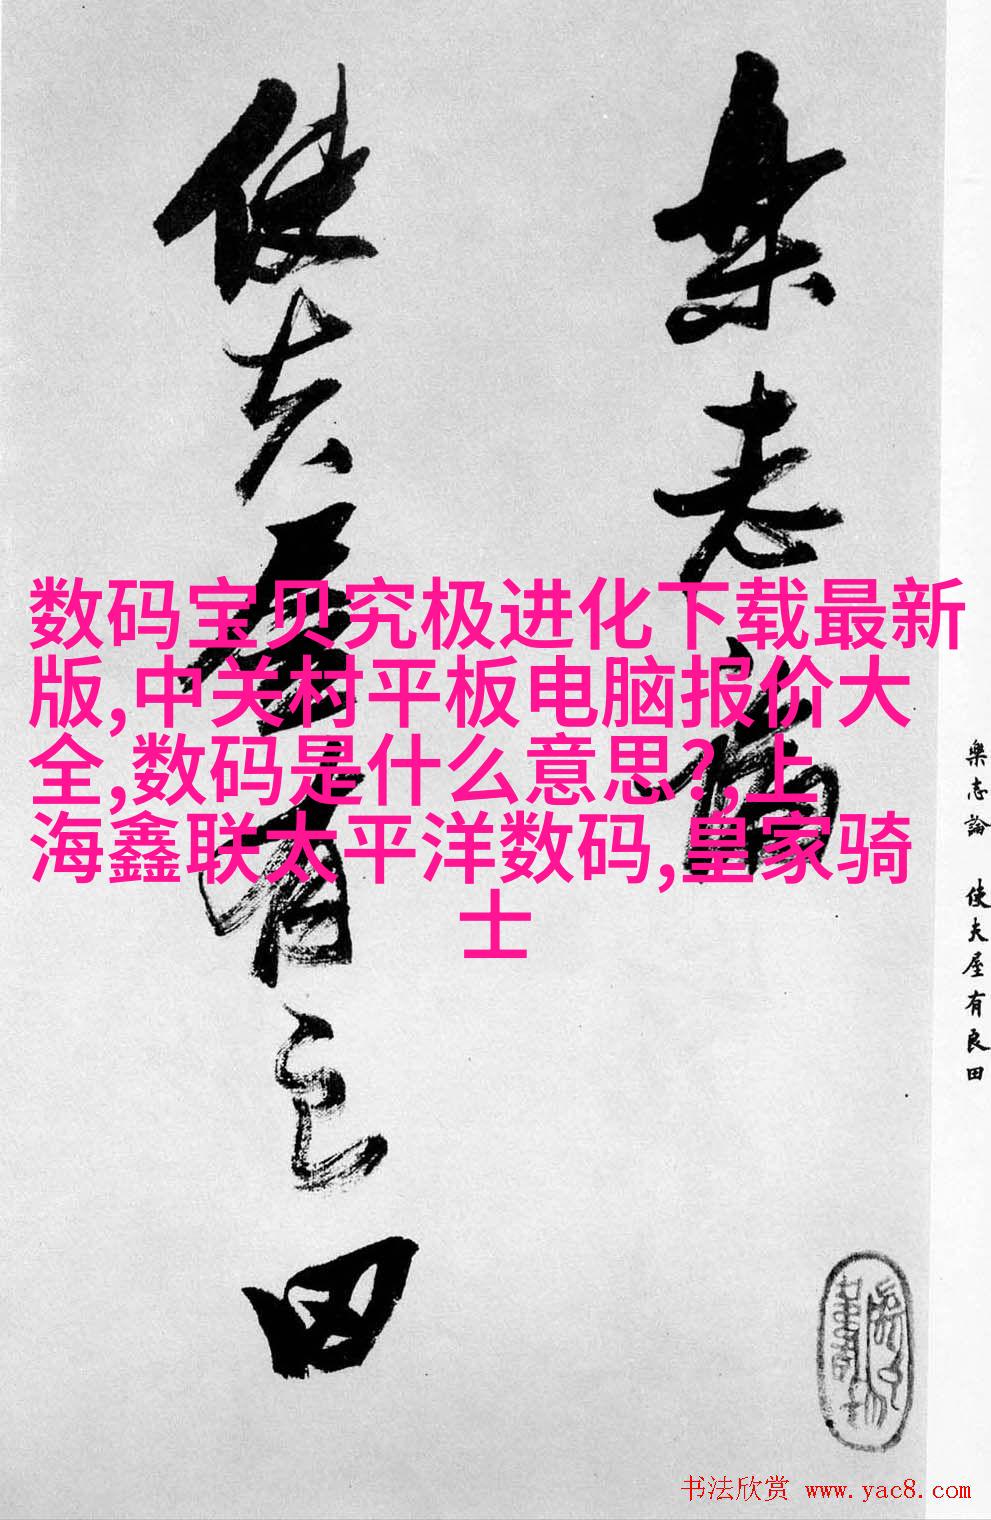 樂志論
使夫屋有良田
数码宝贝究极进化下载最新
版,中关村平板电脑报价大
全,数码是什么意思?,上
海鑫联太平洋数码,皇家骑
士
樂志論 使夫屋有良田
书法欣赏 www.yac8.com